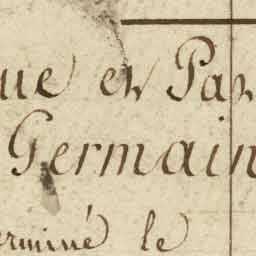 ue en Par
Germain
erminé le